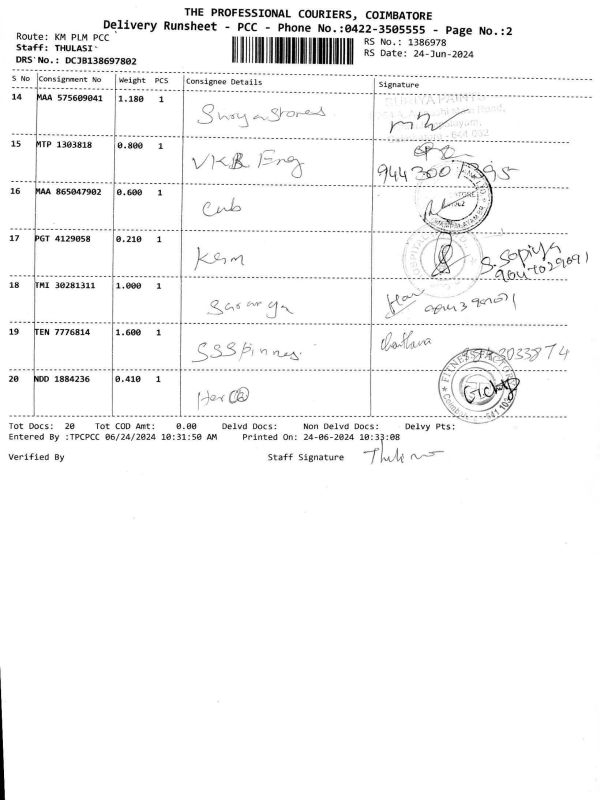 THE PROFESSIONAL COURIERS, COIMBATORE
Delivery Runsheet - PCC - Phone No.:0422-3505555 - Page No.:2
Route: KM PLM PCC
RS No.: 1386978
Staff: THULASI
RS Date: 24-Jun-2024
DRS No.: DCJB138697802
S No Consignment No Weight PCS Consignee Details Signature
14 MAA 575609041 1.180 1 Surya Stores
15 MTP 1303818 0.800 1 VKR Eng
16 MAA 865047902 0.600 1 Cub
17 PGT 4129058 0.210 1 KGM S. Sopiya
18 TMI 30281311 1.000 1 Saranya
19 TEN 7776814 1.600 1 SSSpinnes
20 NDD 1884236 0.410 1
Tot Docs: 20 Tot COD Amt: 0.00 Delvd Docs: Non Delvd Docs: Delvy Pts:
Entered By :TPCPCC 06/24/2024 10:31:50 AM Printed On: 24-06-2024 10:33:08
Verified By Staff Signature